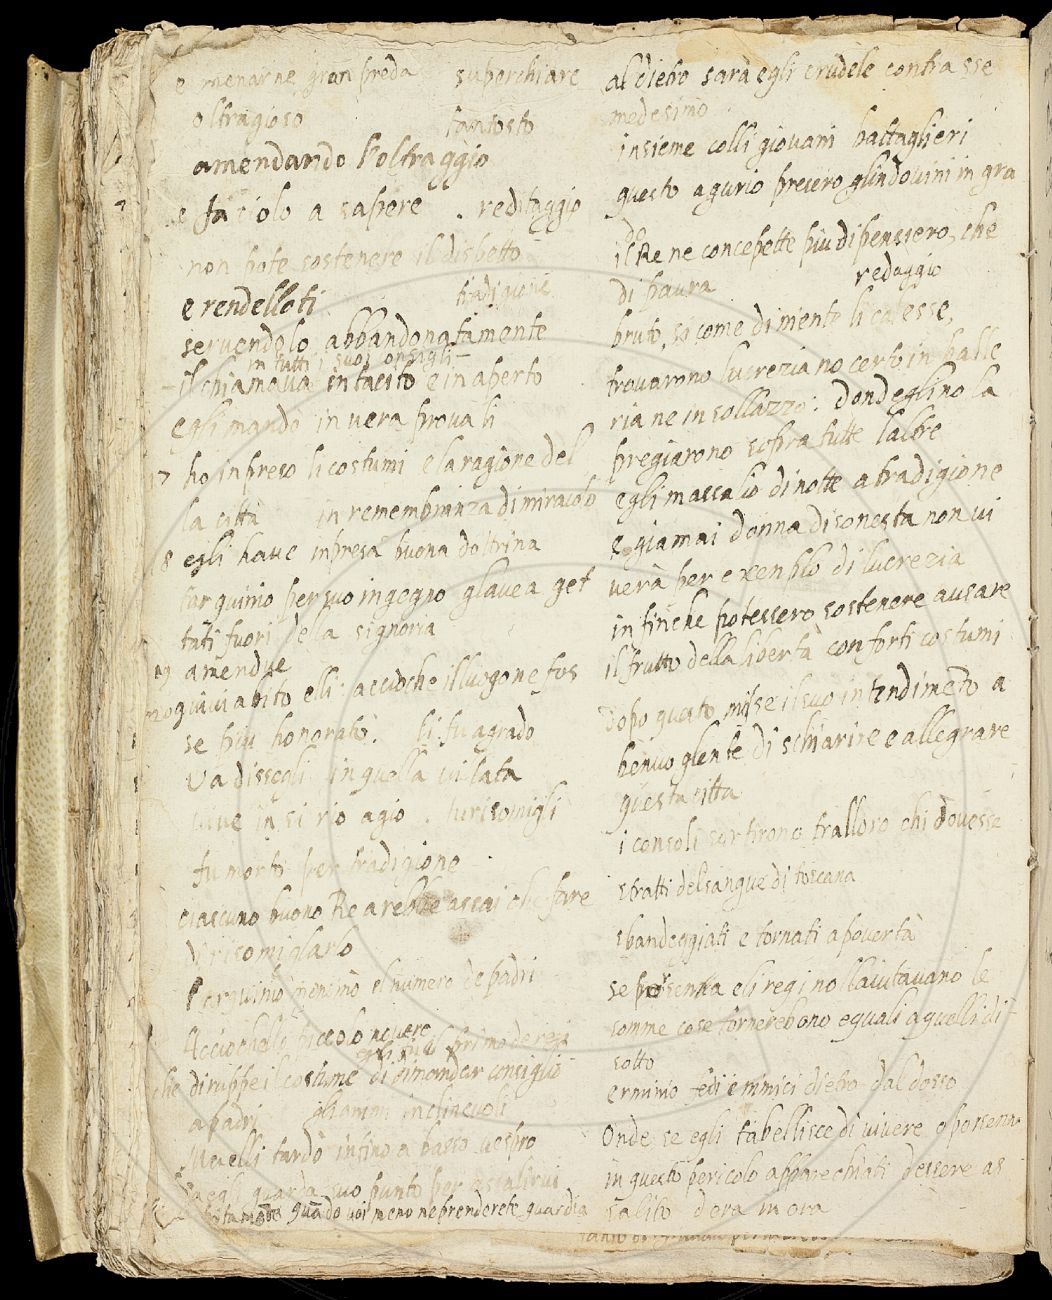 e menarne gran preda   superchiare
oltragioso   tantosto
amendando l'oltraggio
e faciolo a sapere . reditaggio
non pote sostenere il dispetto
e rendelloti   tradigione
servendolo abbandonatamente
in tutti i suoi consigli
il chiamava in tacito e in aperto
egli mando in vera prova li
17 ho inpreso li costumi e la ragione del
la città   in remembranza di miracolo
18 egli have inpresa buona dottrina
tarquinio per suo ingegno glavea get
tati fuori della signoria
19 amendue
20 quivi abito elli: accioche illuogo ne fos
se piu honorato. li fu agrado
va dissegli in quella vilata
in si rio agio . turisomigli
fu morto per tradigione
ciascuno buono Re arebbe assai che fare
risomigliarlo
menimò el numero de padri
Acciochello piccolo novero
egli fu il primo de regi
che diruppe il costume di dimandar consiglio
a padri   gli animi inclinevoli
elli tardò infino a basso vespro
egli guarda suo punto per assalirvi
quādo voi meno neprenderete guardia
al dietro sarà egli crudele contra sse
medesimo
insieme colli giovani battaglieri
questo agurio presero glindovini in gra
do
il Re ne concepette piu di pensiero, che
di paura   redaggio
bruto, si come dimento li calesse,
trovarono lucrezia no certo in balle
ria ne in sollazzo: dondeglino la
pregiarono sopra tutte laltre
egli massalio di notte a tradigione
e giamai donna disonesta non vi
verà per exenplo di lucrezia
in finche potessero sostenere ausare
il frutto della libertà con forti costumi
Dopo questo mise il suo intendimēto a
benvoglente di schiarire e allegrare
questa citta
i consoli sortirono tralloro chi dovesse
stratti del sangue di toscana
sbandeggiati e tornati a povertà
se porsenna e li regi nollaiutavano le
somme cose tornerebono eguali a quelli di
sotto
erminio fedì e nimici dietro dal dosso
Onde se egli tabellisce di vivere o porsenna
in questo pericolo apparechiati dessere as
salito dora in ora